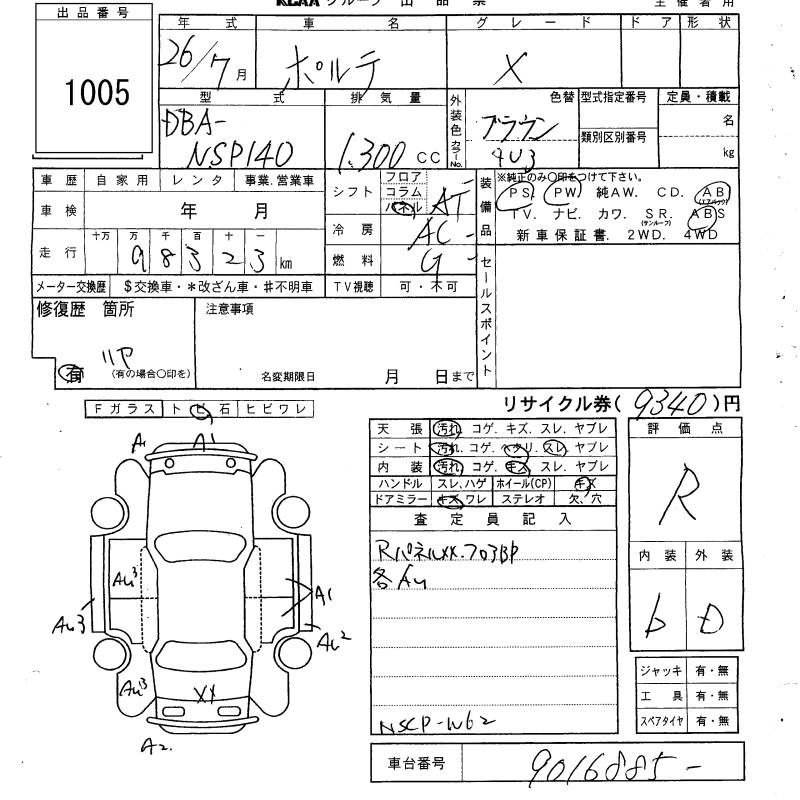 KCAA グループ 出 品 票
主 催 者 用
出品番号
1005
年 式 車 名 グ レ ー ド ド ア 形 状
26/7月 ポルテ X
型 式 排 気 量 外装色 カラーNo. 色替 型式指定番号 定員・積載
DBA-
NSP140 1.300 CC ブラウン 4U3 類別区別番号 名 kg
車 歴 自 家 用 レ ン タ 事業.営業車
車 検 年 月
走 行 十万 万 千 百 十 一
9 8 3 2 3 km
シフト フロア コラム パネル AT
冷 房 AC-
燃 料 G-
装備品 ※純正のみ〇印をつけて下さい。
PS. PW. 純AW. CD. AB(エアバック)
TV. ナビ. カワ. SR.(サンルーフ) ABS
新 車 保 証 書. 2WD. 4WD
メーター交換歴 $交換車・*改ざん車・#不明車 TV視聴 可・不可
セールスポイント
修復歴 箇所 注意事項
有 リヤ (有の場合〇印を) 名変期限日 月 日まで
リサイクル券(9340)円
Fガラス ト ビ 石 ヒビワレ
天 張 汚れ コゲ. キズ. スレ. ヤブレ
シート 汚れ コゲ. ヘタリ. スレ. ヤブレ
内 装 汚れ コゲ. キズ. スレ. ヤブレ
ハンドル スレ.ハゲ ホイール(CP) キズ
ドアミラー キズ.ワレ ステレオ 欠.穴
評 価 点
R
内 装 外 装
b D
査 定 員 記 入
RパネルXX.フロアBP
各AU
NSCP-W62
A1
A1
AU3
AU3
AU3
A1
AU2
XX
A2.
ジャッキ 有・無
工 具 有・無
スペアタイヤ 有・無
車台番号 9016885-